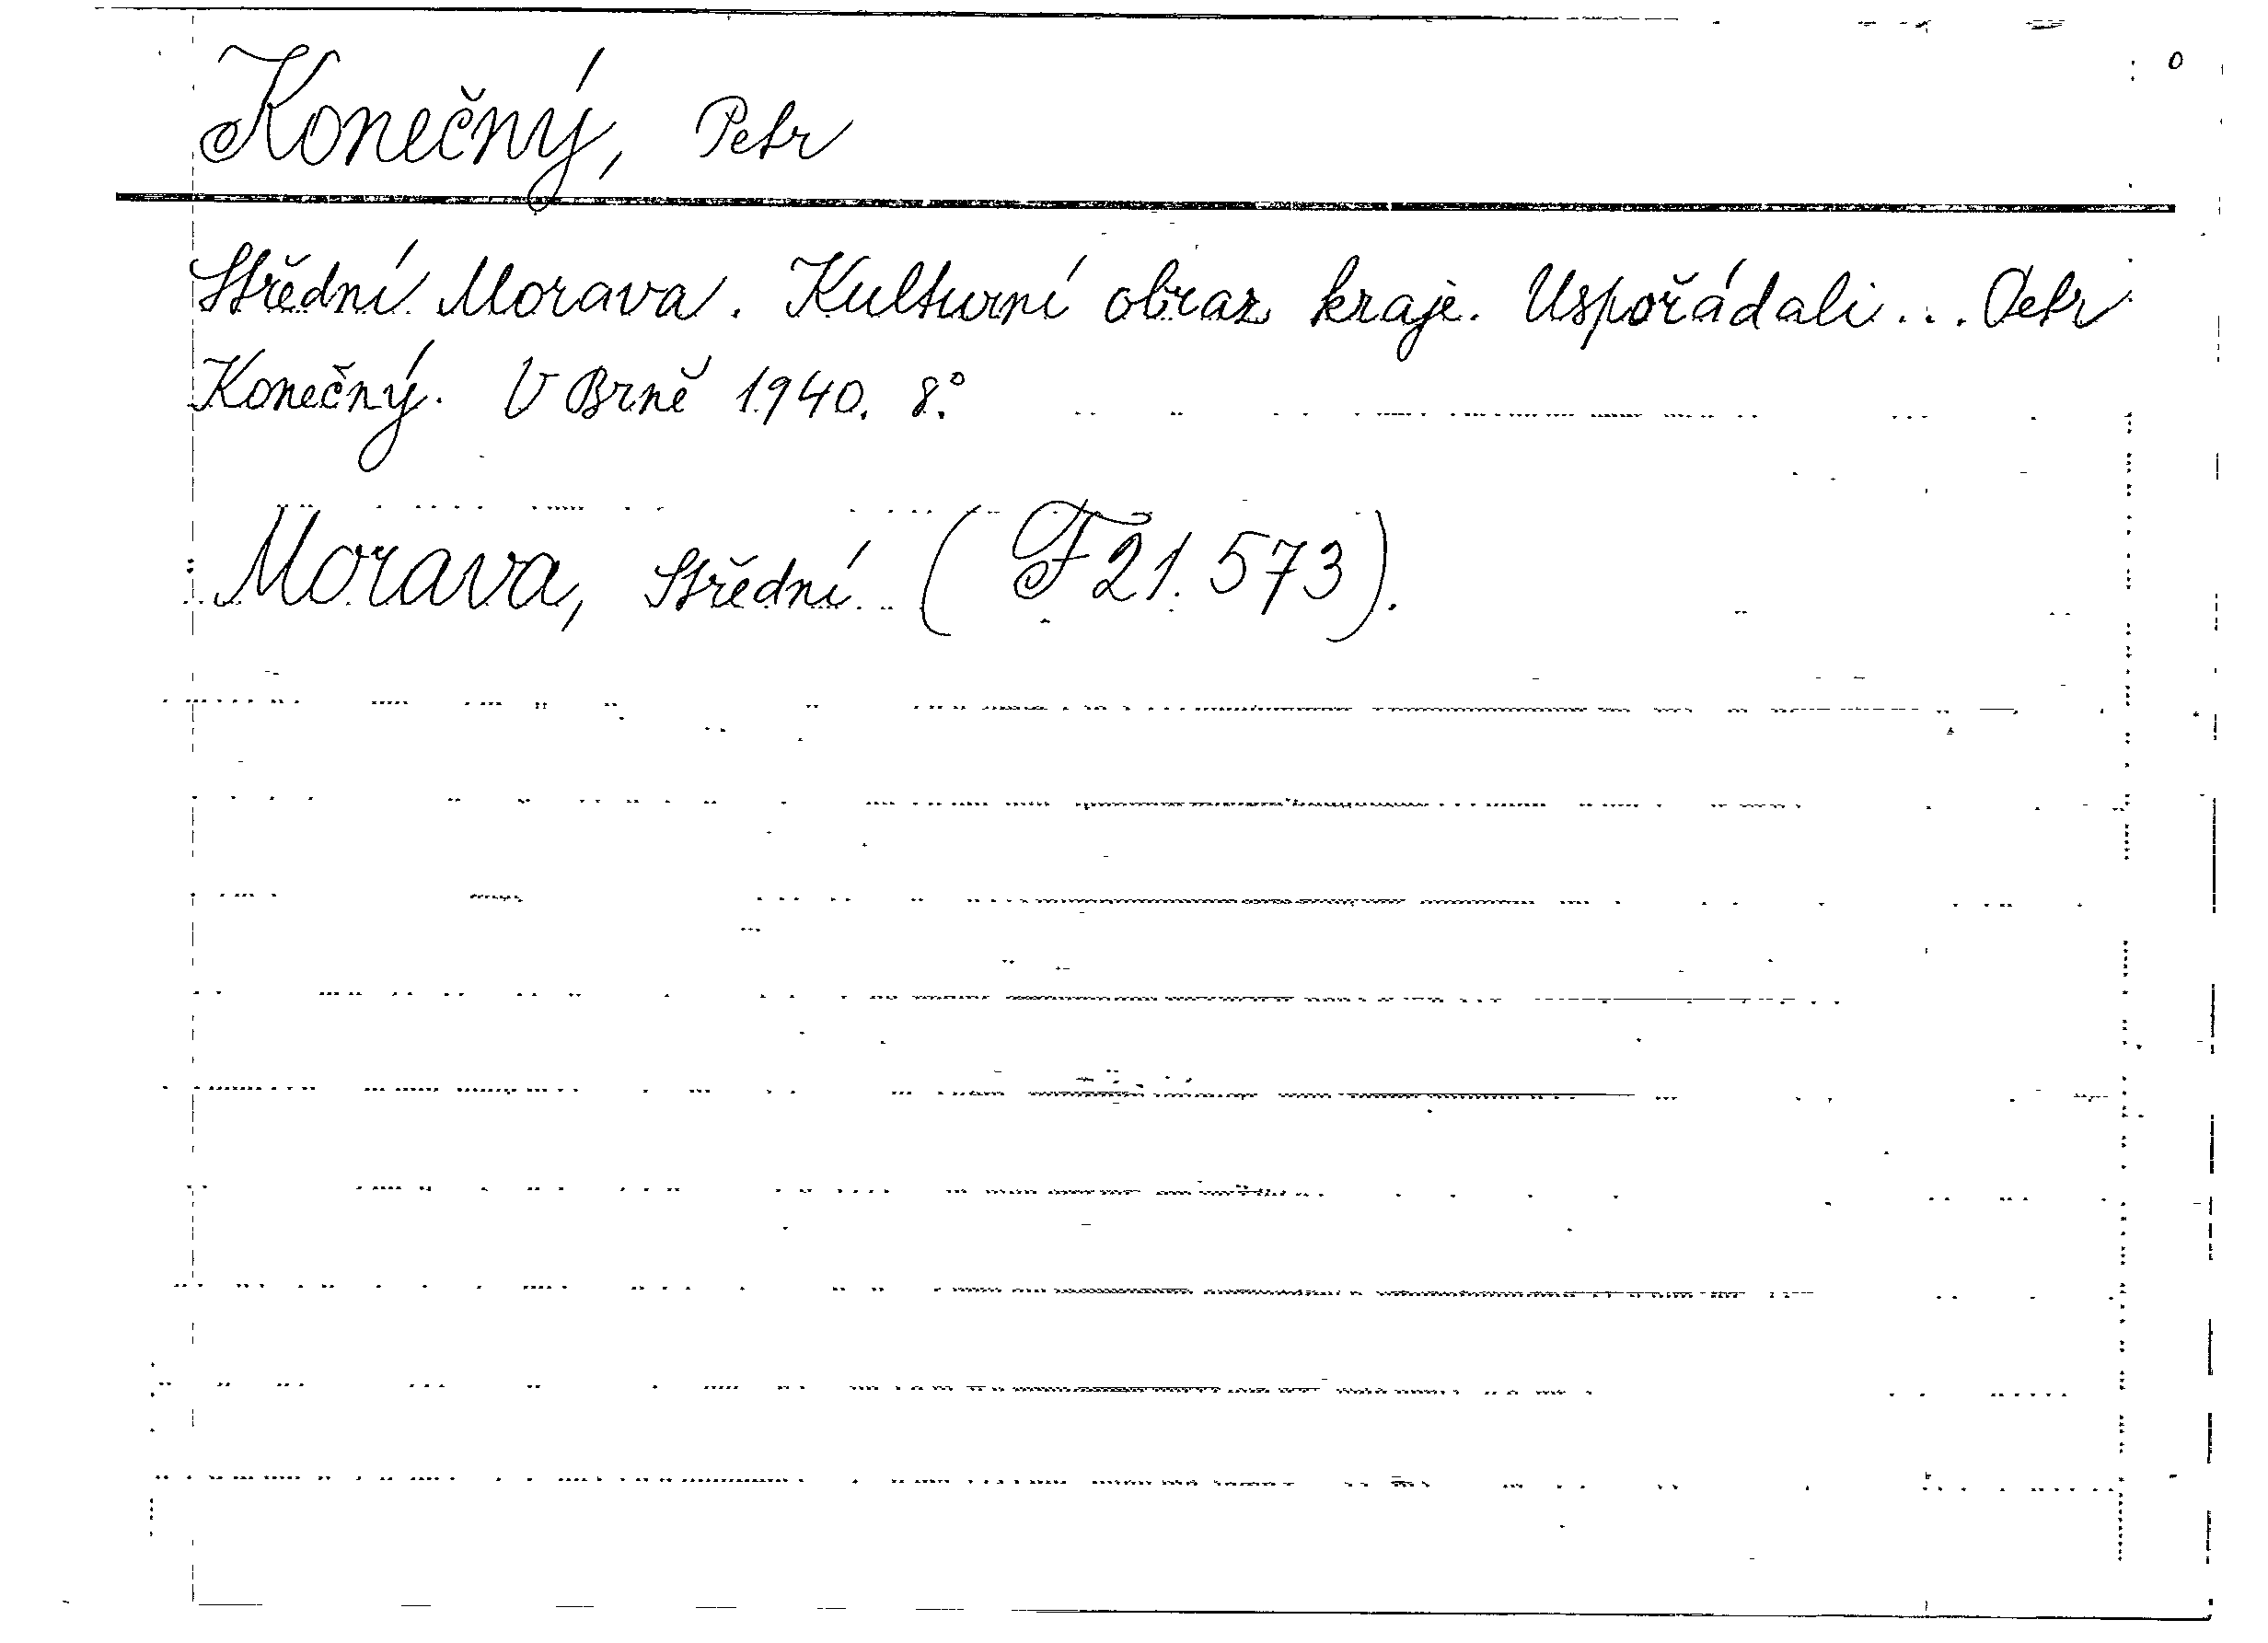 Konečný, Petr
Střední Morava. Kulturní obraz kraje. Uspořádali... Petr
Konečný. V Brně 1940. 8.°
Morava, Střední (F 21.573).